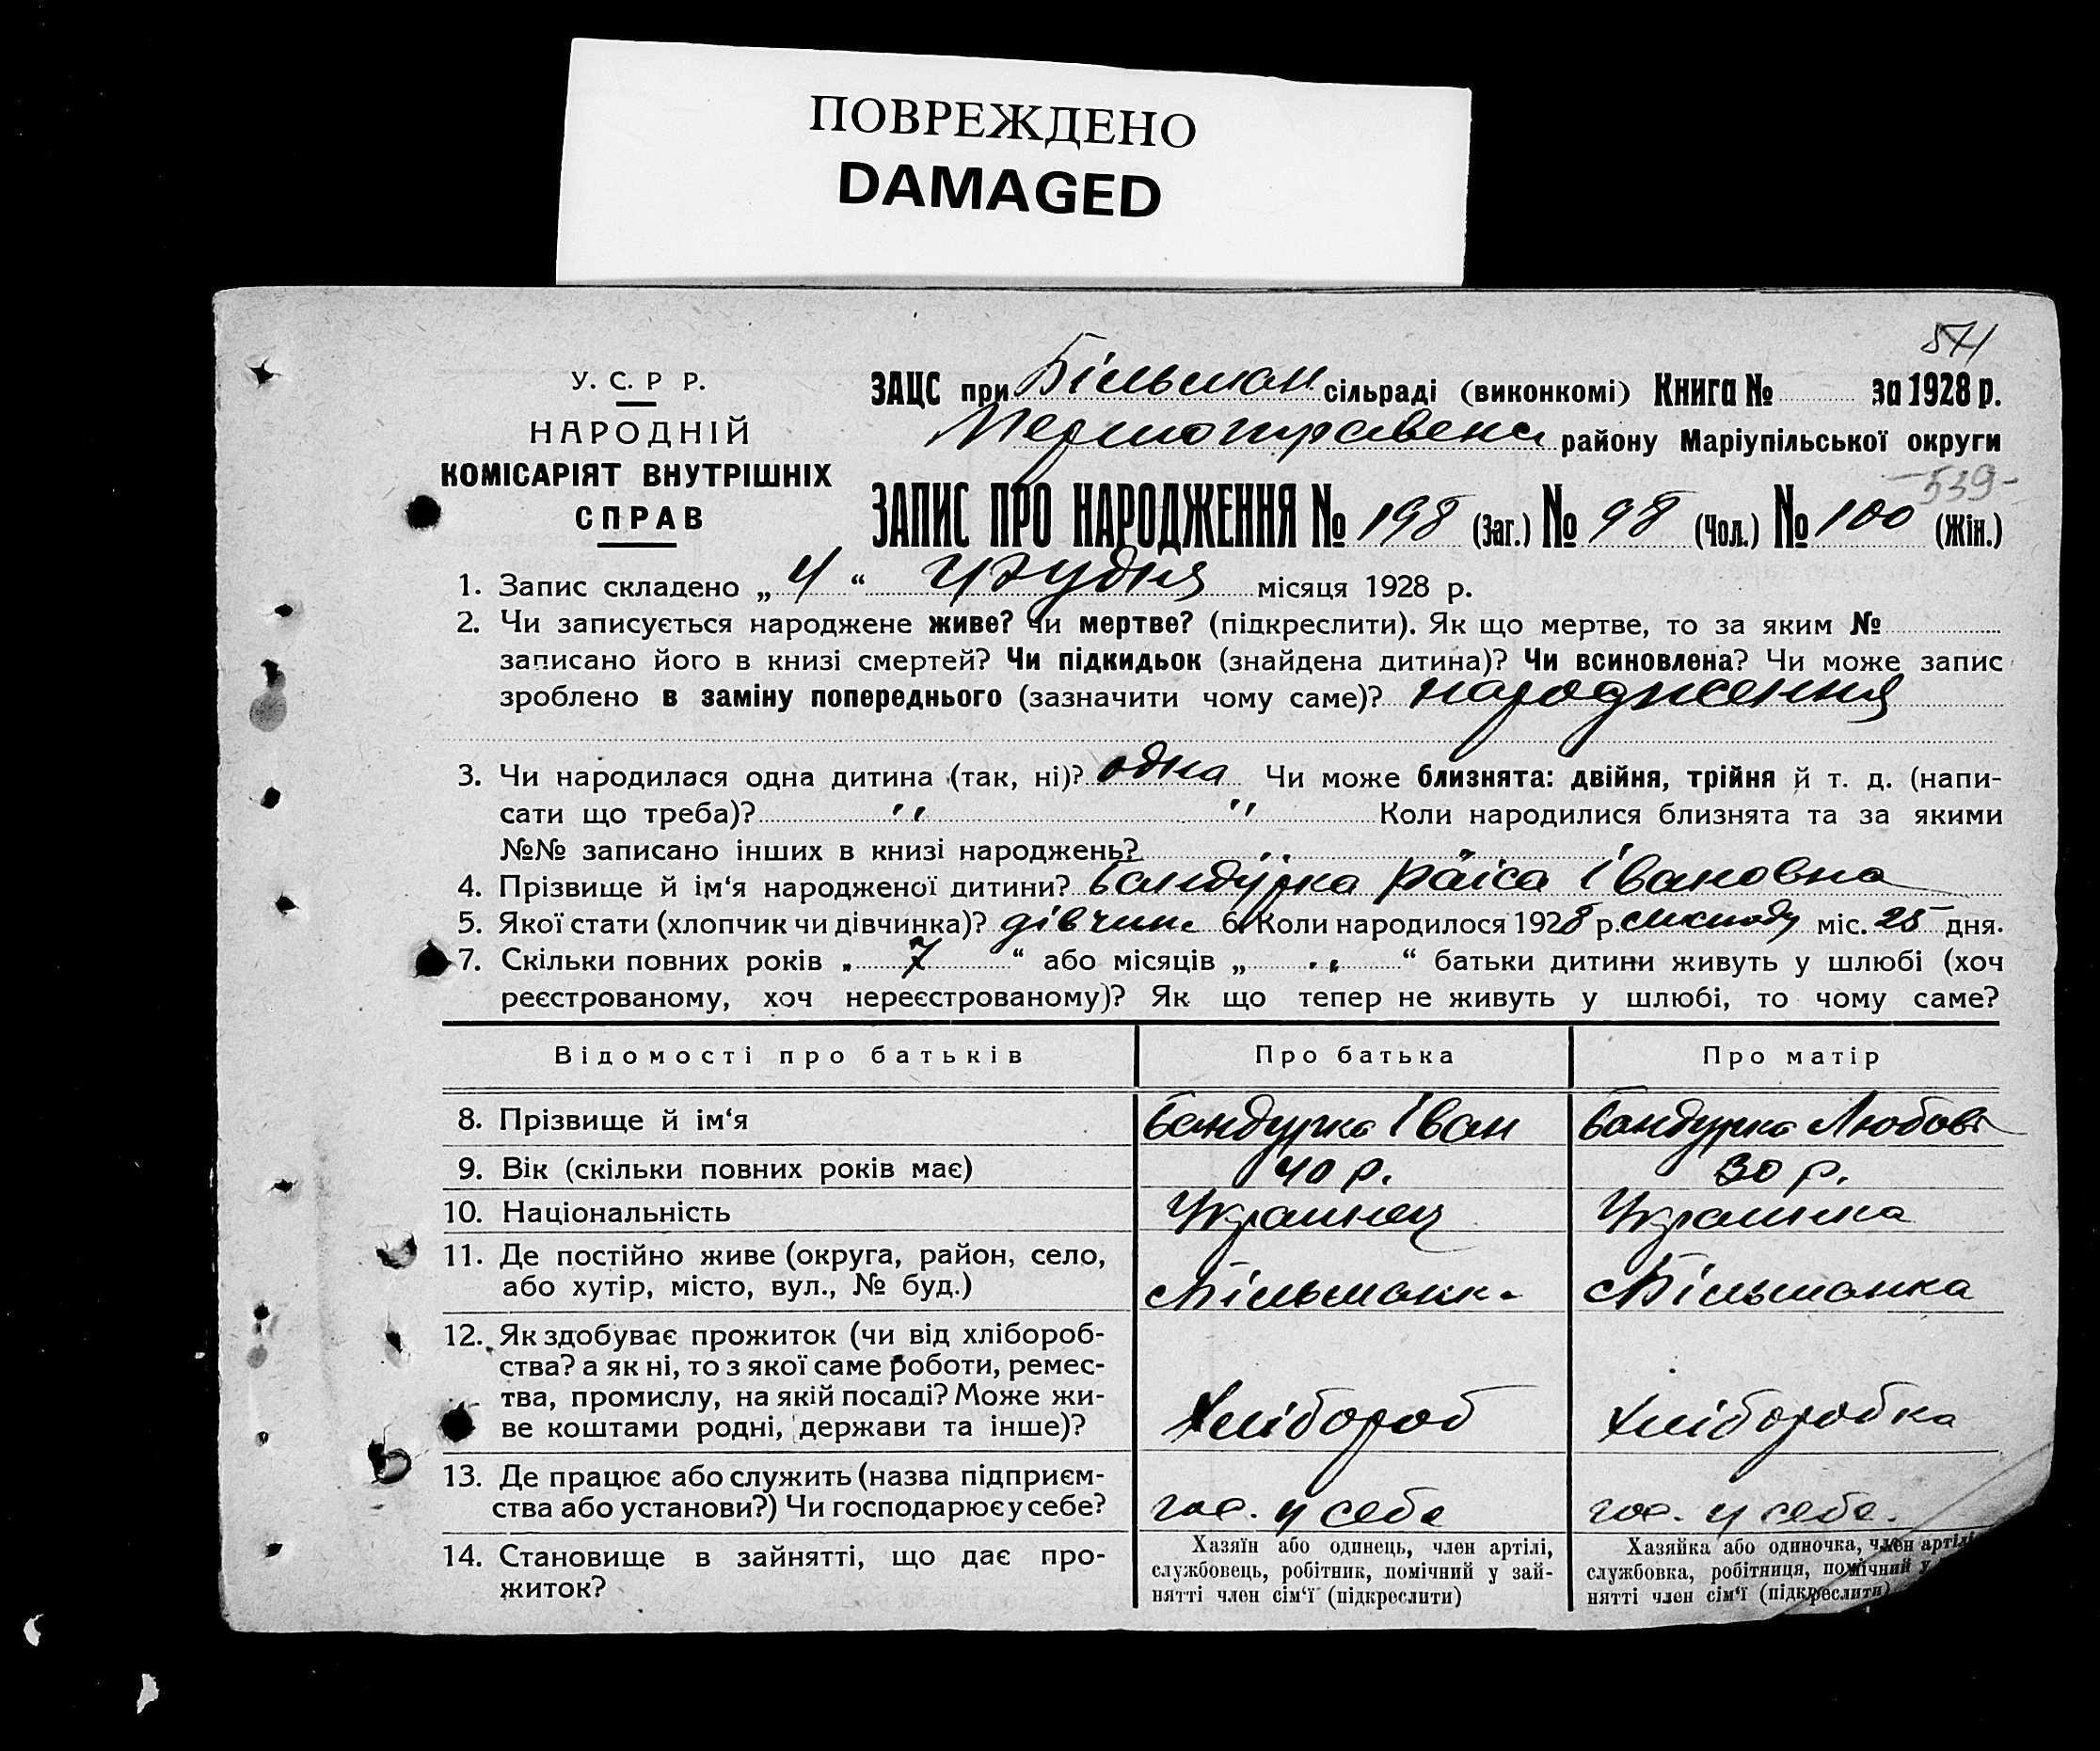 ПОВРЕЖДЕНО
DAMAGED
571
У. С. Р Р.
НАРОДНІЙ
КОМІСАРІЯТ ВНУТРІШНІХ
СПРАВ
ЗАЦС при Більман сільраді (виконкомі) Книга № за 1928 р.
району Маріупільської округи
-539-
ЗАПИС ПРО НАРОДЖЕННЯ № 198 (Заг.) № 98 (Чол.) № 100 (Жін.)
1. Запис складено „ 4 “ грудня місяця 1928 р.
2. Чи записується народжене живе? Чи мертве? (підкреслити). Як що мертве, то за яким №
записано його в книзі смертей? Чи підкидьок (знайдена дитина)? Чи всиновлена? Чи може запис
зроблено в заміну попереднього (зазначити чому саме)? народження
3. Чи народилася одна дитина (так, ні)? одна Чи може близнята: двійня, трійня й т. д. (напи-
сати що треба)? " " Коли народилися близнята та за якими
№№ записано інших в книзі народжень? "
4. Прізвище й ім‘я народженої дитини? Бандурка Раіса Івановна
5. Якої статі (хлопчик чи дівчинка)? дівчин. 6. Коли народилося 1928 р. міс. 25 дня.
7. Скільки повних років „ 7 “ або місяців „ " “ батьки дитини живуть у шлюбі (хоч
реєстрованому, хоч нереєстрованому)? Як що тепер не живуть у шлюбі, то чому саме?
Відомості про батьків Про батька Про матір
8. Прізвище й ім‘я Бандурка Іван Бандурка Любовь
9. Вік (скільки повних років має) 40 р. 30 р.
10. Національність Украинец Украинка
11. Де постійно живе (округа, район, село,
або хутір, місто, вул., № буд.) с Більманк. с Більманка
12. Як здобуває прожиток (чи від хлібороб-
ства? а як ні, то з якої саме роботи, ремес-
тва, промислу, на якій посаді? Може жи-
ве коштами родні, держави та інше)? Хлібороб Хліборобка
13. Де працює або служить (назва підприєм-
ства або установи?) Чи господарює у себе? гос. у себе гос. у себе.
14. Становище в зайнятті, що дає про-
житок?
Хазяїн або одинець, член артілі,
службовець, робітник, помічний у зай-
нятті член сім‘ї (підкреслити)
Хазяйка або одиночка, член артілі
службовка, робітниця, помічний у
нятті член сім‘ї (підкреслити)